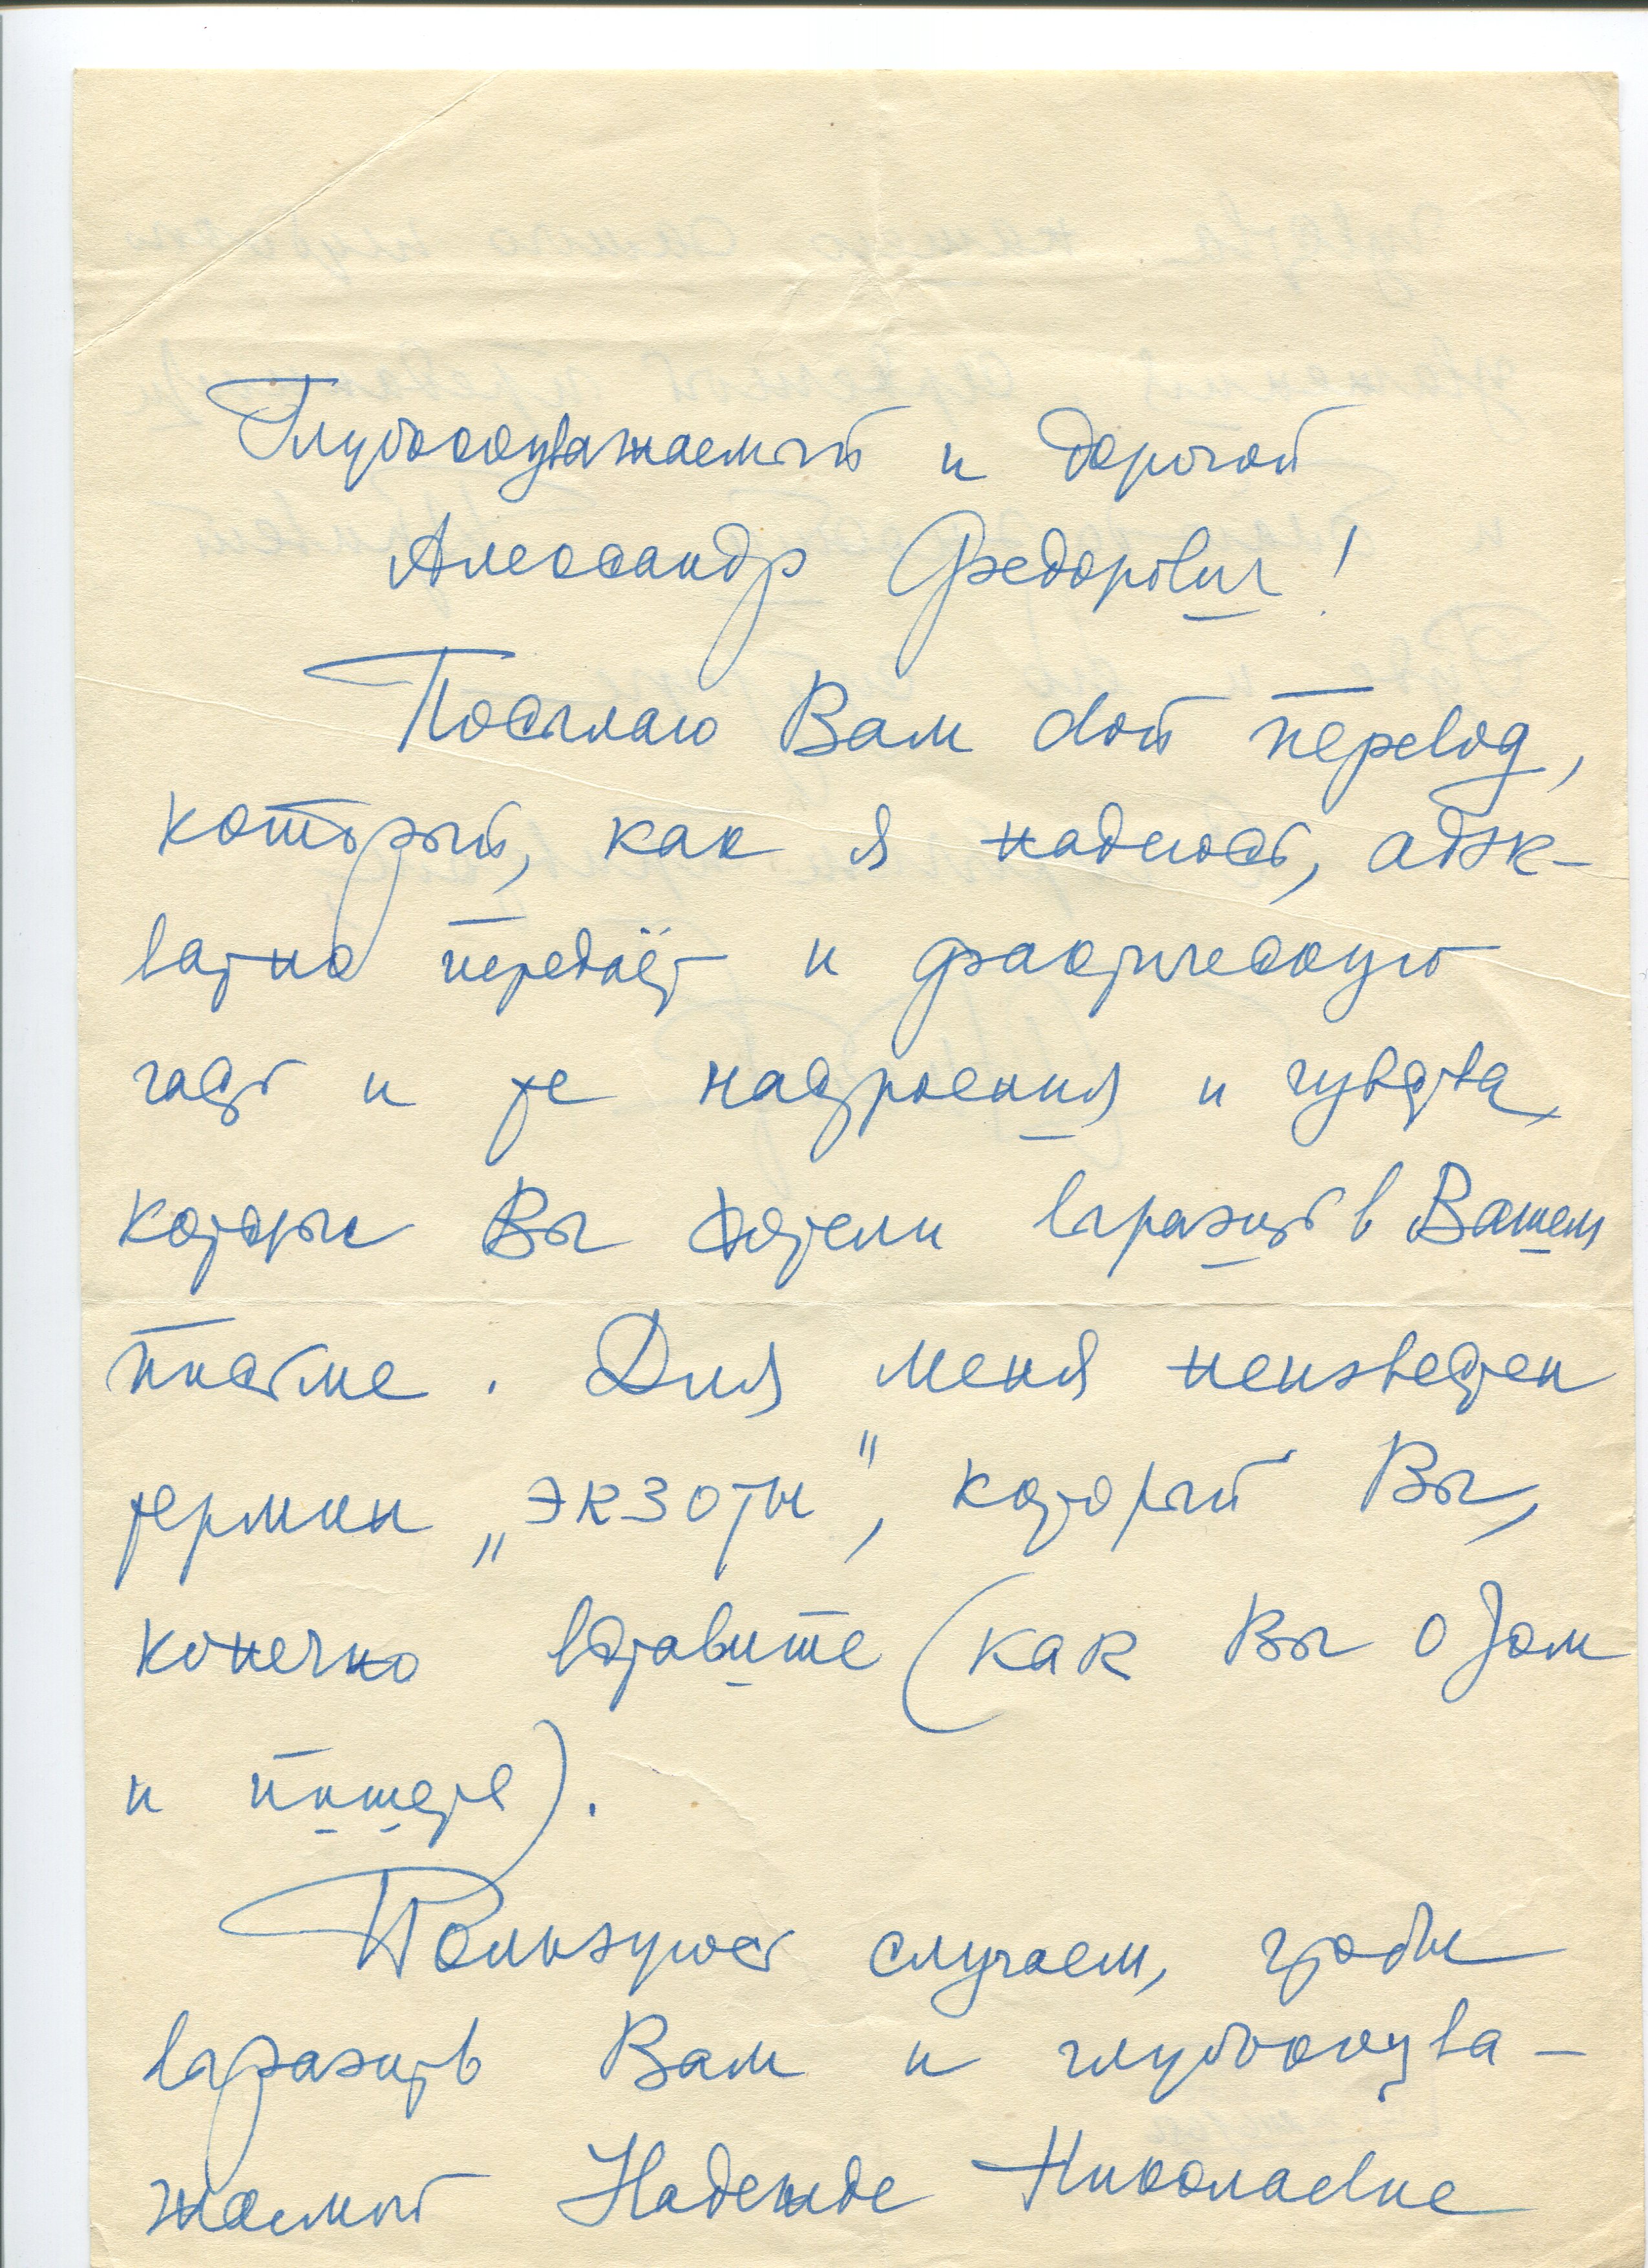 Глубокоуважаемый и дорогой
Александр Федорович!
Посылаю Вам свой перевод,
который, как я надеюсь, адэк-
ватно передаёт и фактическую
часть и те настроения и чувства,
которые Вы хотели выразить в Вашем
письме. Для меня неизвестен
термин „экзоты", который Вы,
конечно вставите (как Вы о том
и пишете).
Пользуюсь случаем, чтобы
выразить Вам и глубокоува-
жаемой Надежде Николаевне